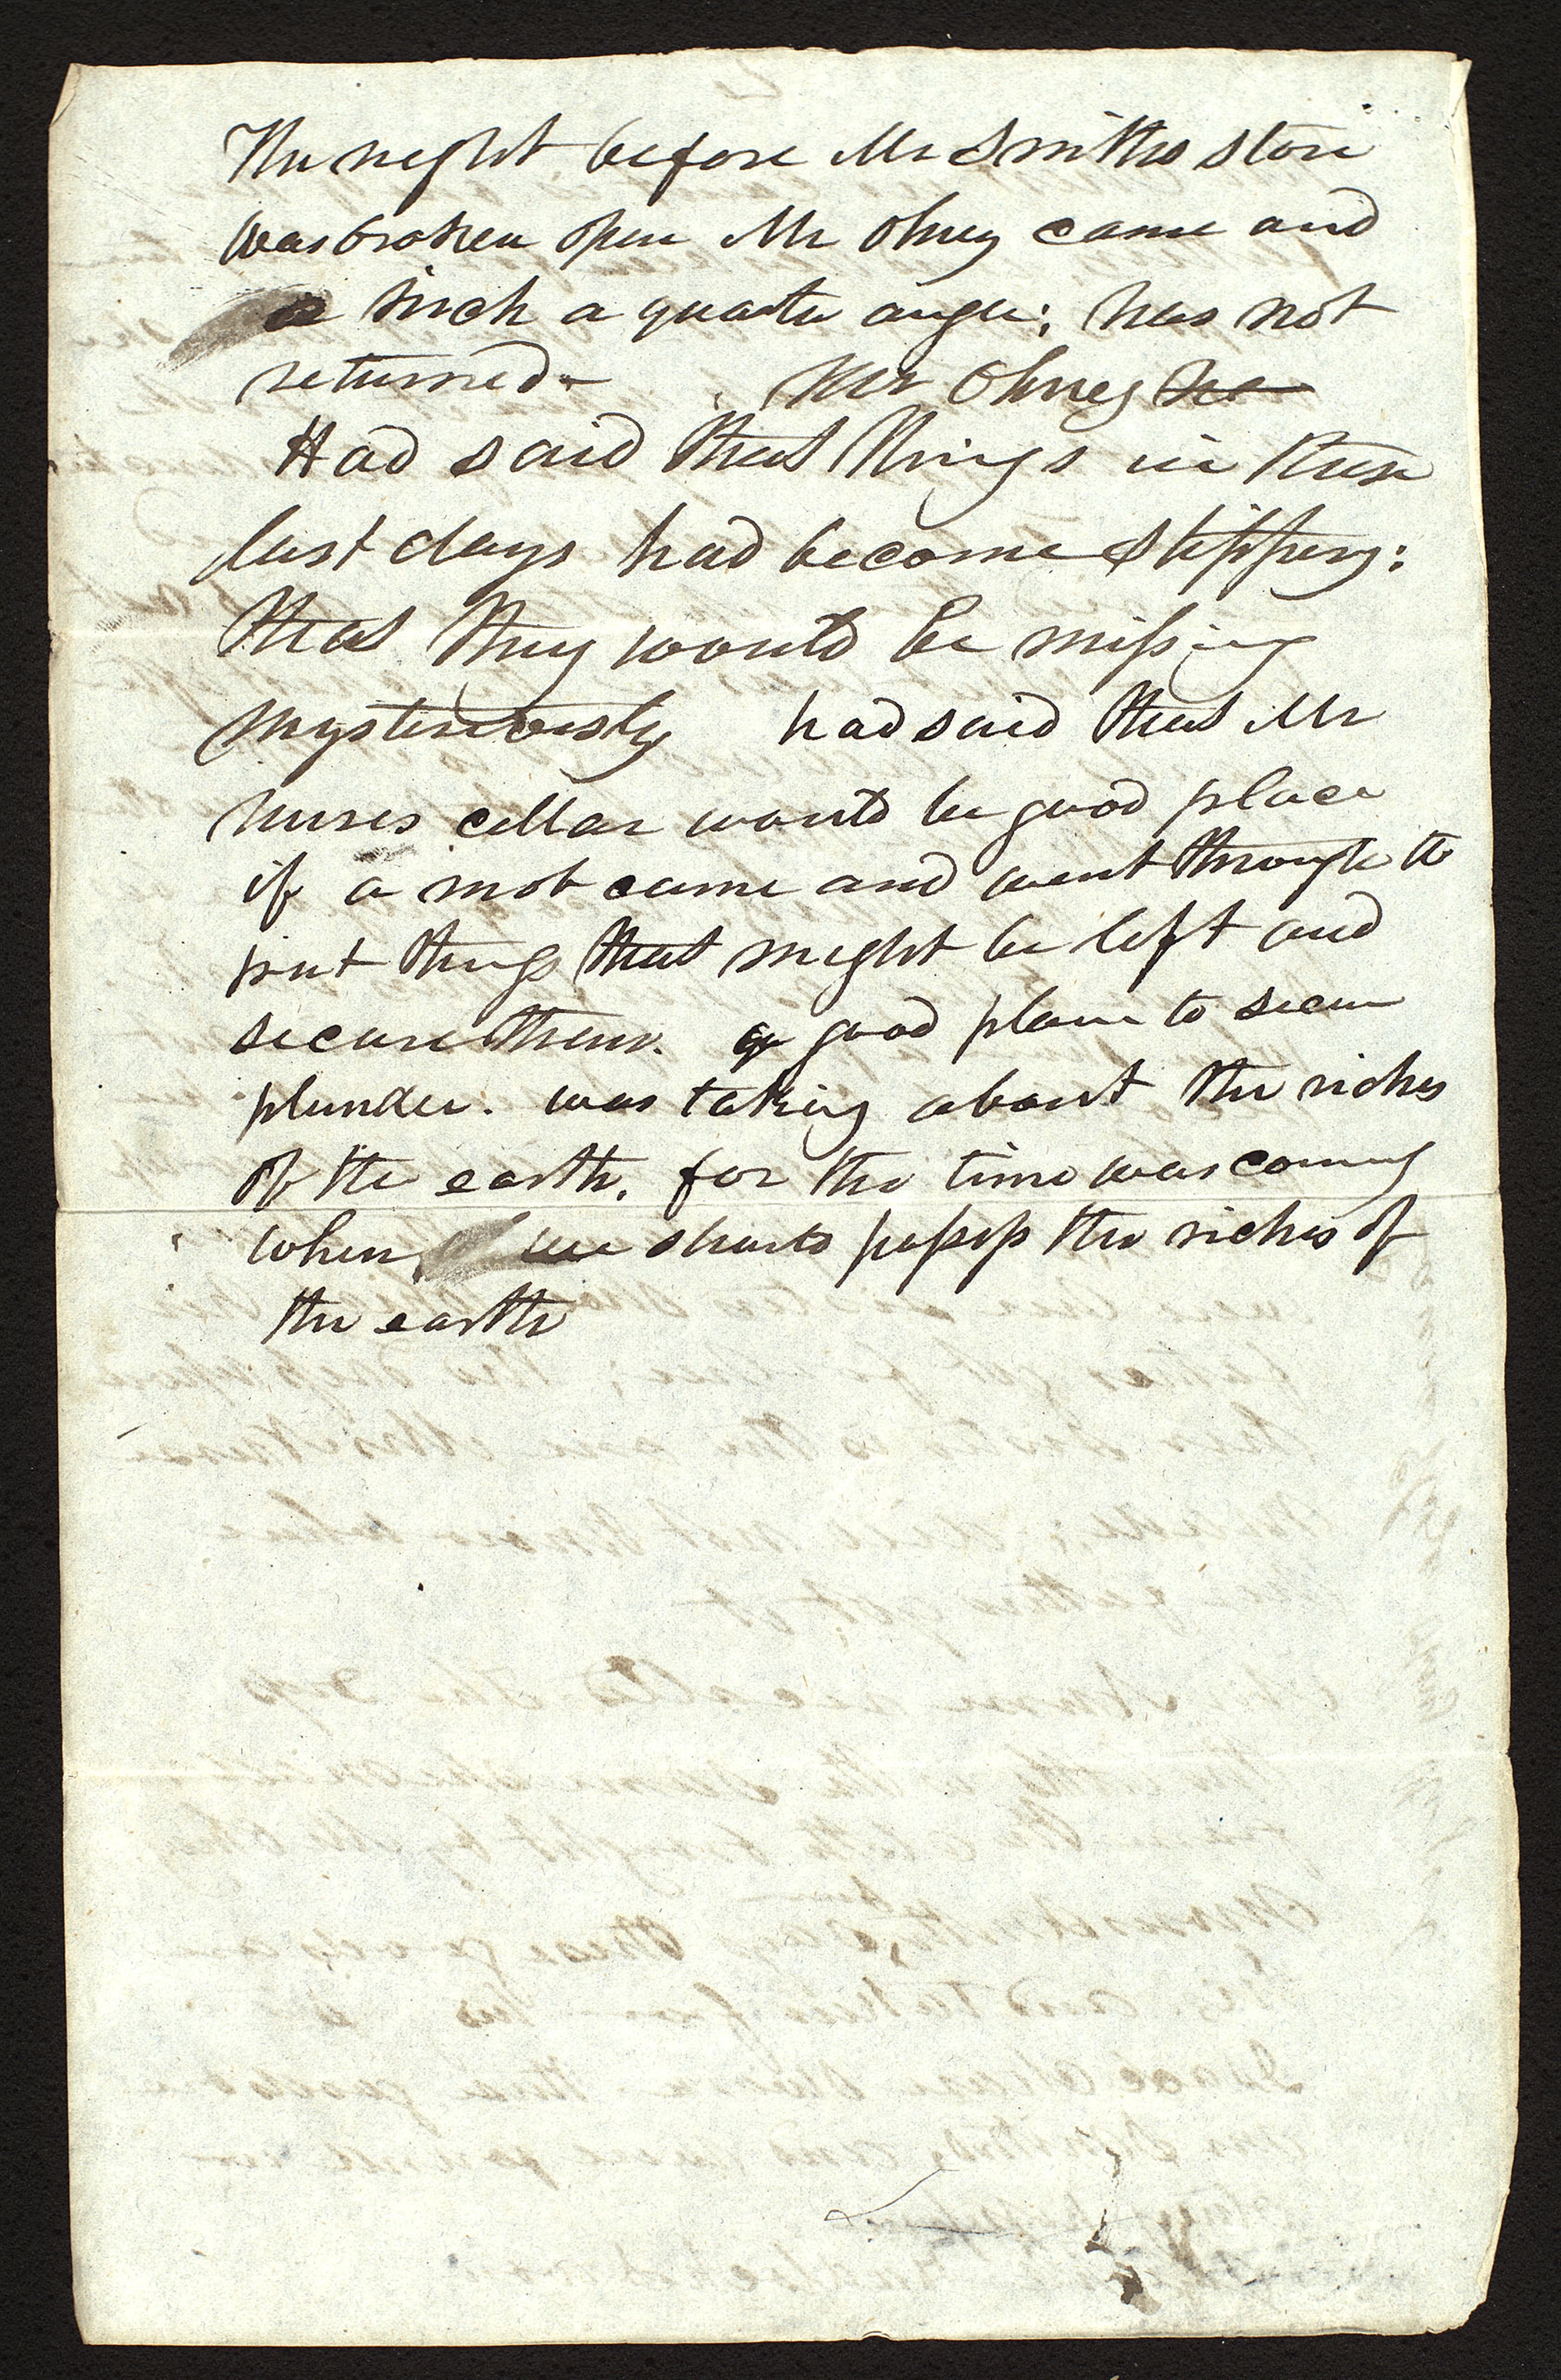 The night before Mr Smiths store
was broken open Mr Olney came and
a inch a quarter auger; has not
returned— Mr Olney he
Had said that things in these
last days had become slippery:
that they would be missing
mysteriously had said that Mr
nurses cellar would be good place
if a mob came and went through to
put things that might be left and
secure them. a good place to secure
plunder. was talking about the riches
of the earth. for the time was coming
when we should possess the riches of
the earth